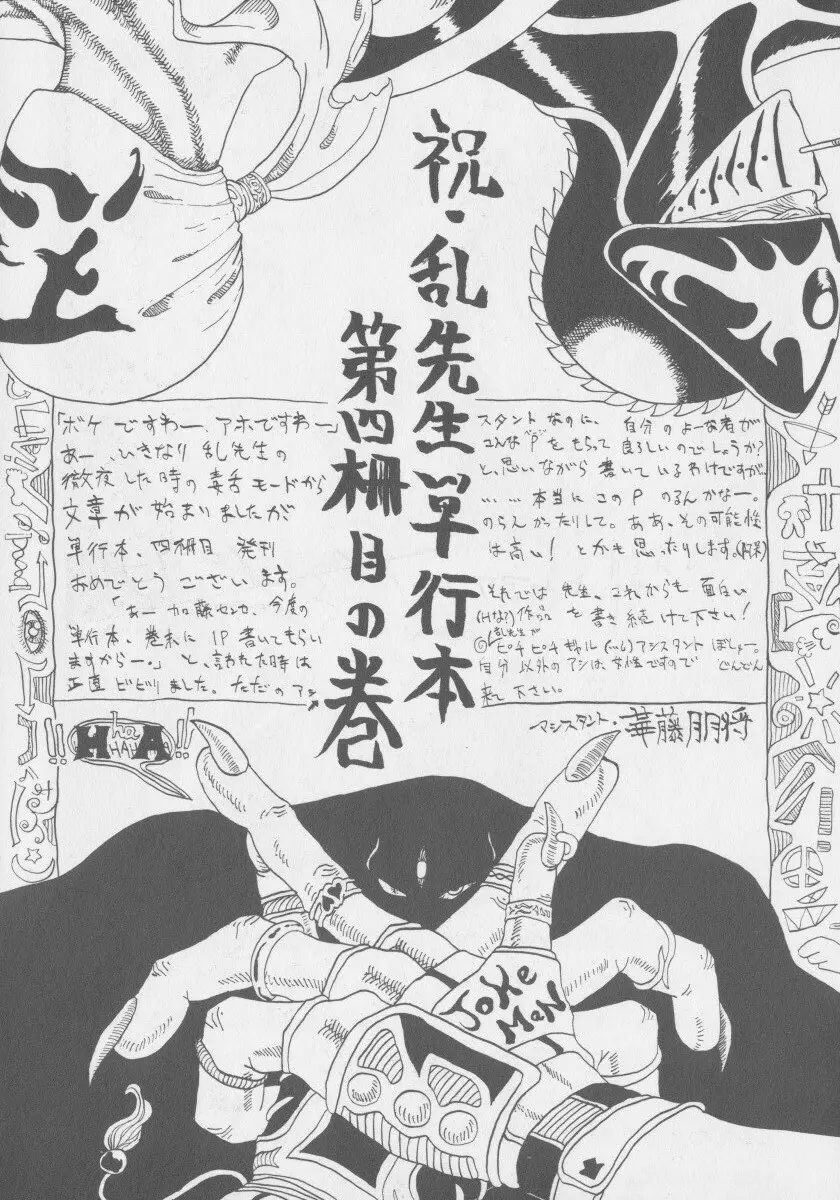 祝・乱先生単行本
第四柵目の巻
「ボケですわー、アホですわー」
あー、いきなり乱先生の
徹夜した時の毒舌モードから
文章が始まりましたが
単行本、四冊目 発刊
おめでとう ございます。
「あー 加藤センセ、今度の
単行本、巻末に 1P 書いてもらい
ますからー。」と、言われた時は
正直 ビビリました。ただの アシ
スタントなのに、自分のよーな者が
こんな"P"をもらって 良ろしいのでしょうか?
と、思いながら 書いているわけですが
……本当に この P のるんかなー。
のらんかったりして。ああ、その可能性
は高い! とかも思ったりします。
それでは 先生、これからも 面白い
(Hな?) 作品 を書き続けて下さい!
乱先生が
◎ピチピチギャル アシスタント ぼしゅー。
自分以外のアシは、女性ですので どんどん
来て下さい。
アシスタント・華藤朋将
!! Ha HAHAHA !!
JoKe
MaN